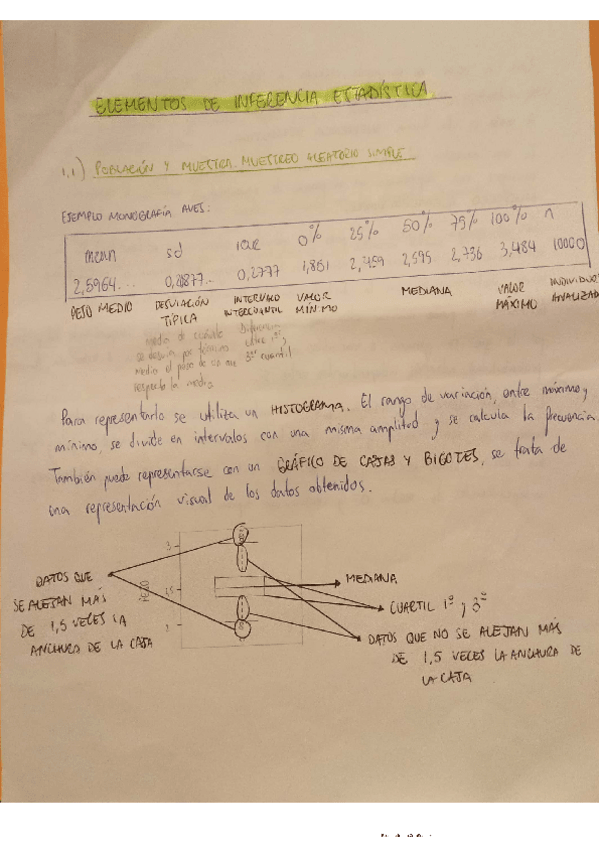 ELEMENTOS DE INFERENCIA ESTADÍSTICA
1.1) POBLACIÓN Y MUESTRA. MUESTREO ALEATORIO SIMPLE
EJEMPLO MONOGRAFÍA AVES:
mean sd IQR 0% 25% 50% 75% 100% n
2,5964... 0,2777 1,801 2,459 2,595 2,736 3,484 10000
PESO MEDIO DESVIACIÓN TÍPICA INTERVALO INTERCUANTIL VALOR MÍNIMO MEDIANA VALOR MÁXIMO INDIVIDUOS ANALIZAD
media de cuánto se desvía por término medio el peso de respecto la media
Diferencia entre 1er y 3er cuantil
Para representarlo se utiliza un HISTOGRAMA. El rango de variación, entre máximo y
mínimo, se divide en intervalos con una misma amplitud y se calcula la frecuencia.
También puede representarse con un GRÁFICO DE CAJAS Y BIGOTES, se trata de
una representación visual de los datos obtenidos.
DATOS QUE
SE ALEJAN MÁS
DE 1,5 VECES LA
ANCHURA DE LA CAJA
PESO
3
2
MEDIANA
CUARTIL 1º y 3º
DATOS QUE NO SE ALEJAN MÁS
DE 1,5 VECES LA ANCHURA DE
LA CAJA